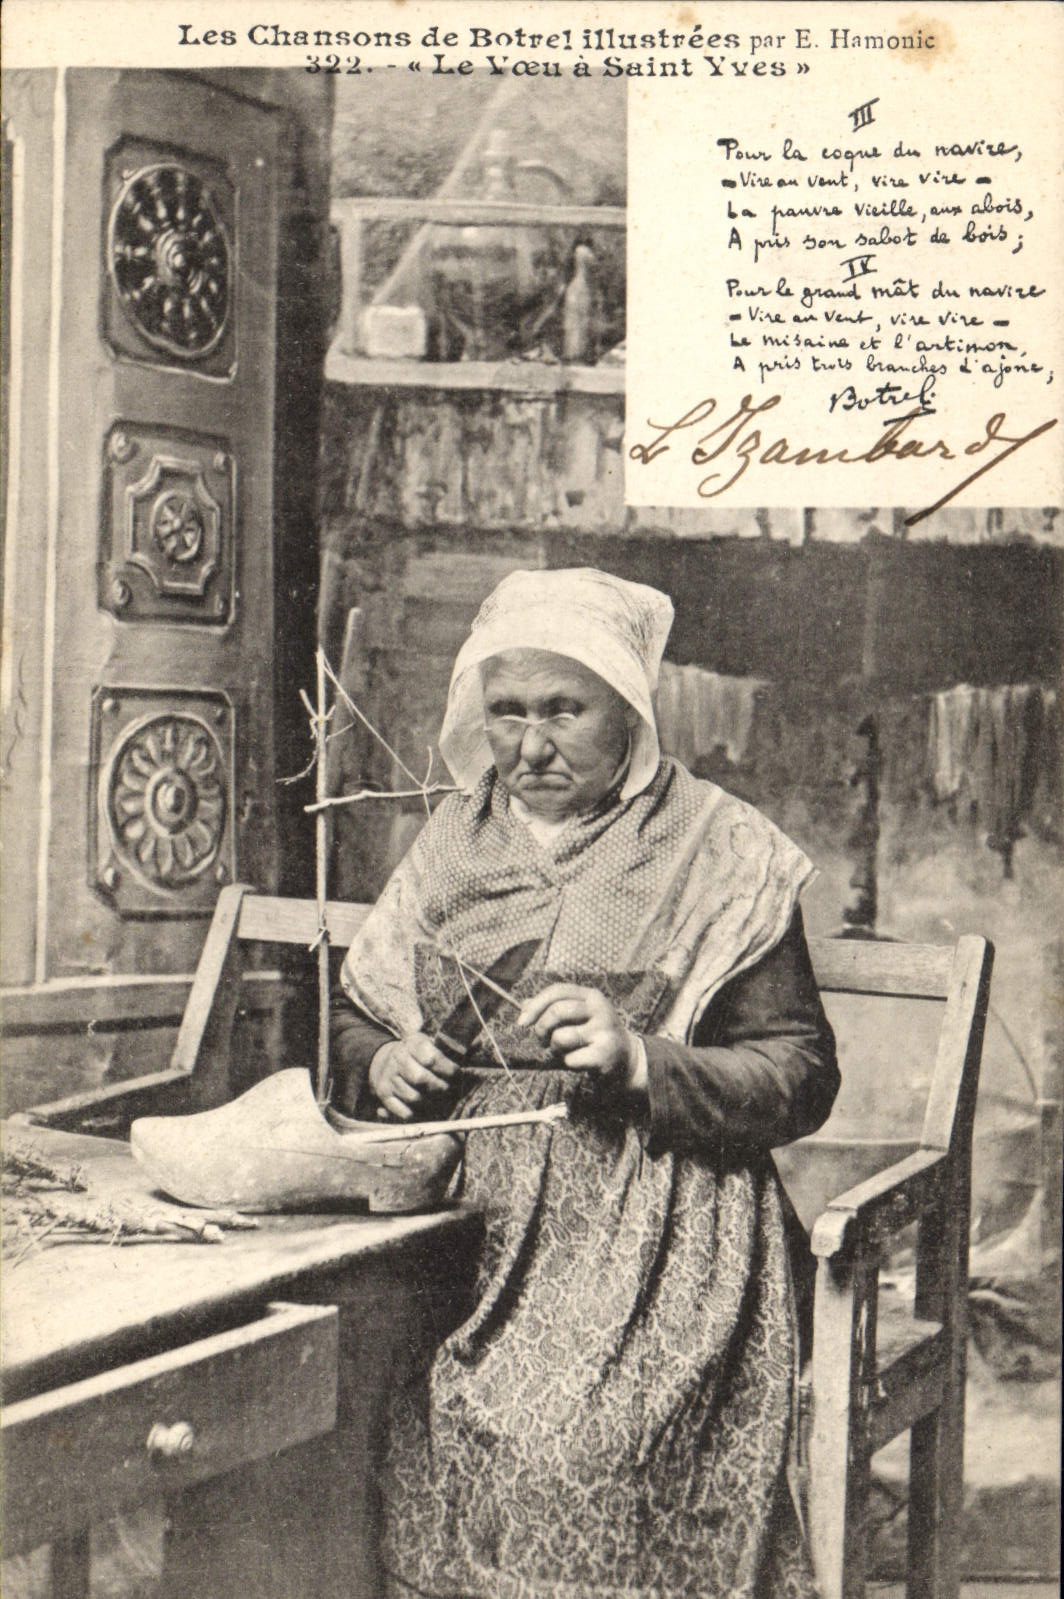 Les Chansons de Botrel illustrées par E. Hamonic
322. - « Le Vœu à Saint Yves »
III
Pour la coque du navire,
- Vire au vent, vire vire -
La pauvre vieille, aux abois,
A pris son sabot de bois ;
IV
Pour le grand mât du navire
- Vire au vent, vire vire -
Le misaine et l'artimon,
A pris trois branches d'ajonc ;
Botrel.
L Izambard